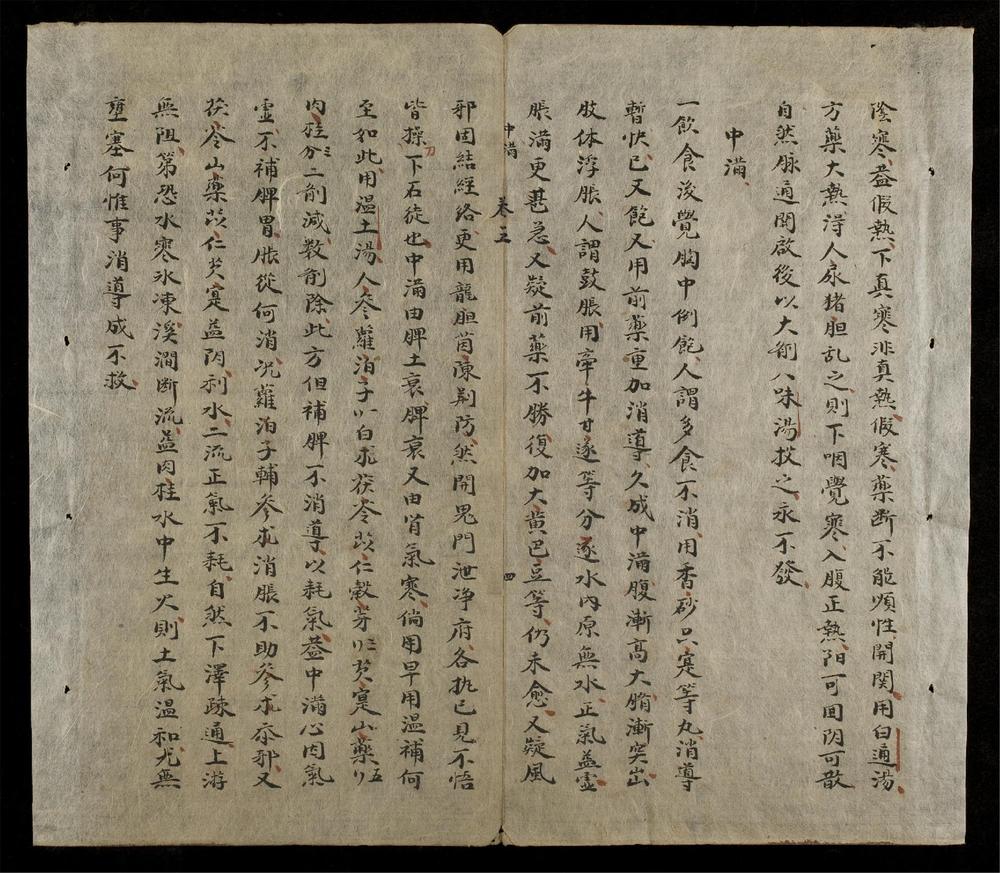 陰寒益假熱下真寒非真熱假寒藥斷不能順性開関用白通湯
方藥大熱得人尿猪胆乱之則下咽覺寒入腹正熱陽可囬閉可散
自然脉通関啟後以大剤八味湯投之永不發
中滿
一飲食後覺胸中倒飽人謂多食不消用香砂只寔等丸消導
暫快已又飽又用前藥重加消導久成中滿腹漸高大臍漸突出
肢体浮脹人謂鼓脹用牽牛甘逐等分逐水內原無水正氣益虛
脹滿更甚急又疑前藥不勝復加大黄巴豆等仍未愈又疑風
中滿 卷三 四
邪固結經络更用龍胆茵陳荆防然開鬼門泄净府各执已見不悟
皆操刀下石徒也中滿由脾土衰脾衰又由腎氣寒倘用早用温補何
至如此用温土湯人參蘿泊子以白朮茯苓苡仁穀芽刂三芡寔山藥刂五
肉桂分三二剤減数剤除此方但補脾不消導以耗氣葢中滿心因氣
虛不補脾胃脹從何消况蘿泊子輔參朮消脹不助參朮添邪又
茯苓山藥苡仁芡寔益陰利水二流正氣不耗自然下澤疎通上游
無阻第恐水寒氷凍溪澗断流益肉桂水中生火則土氣温和尤無
壅塞何惟事消導成不救